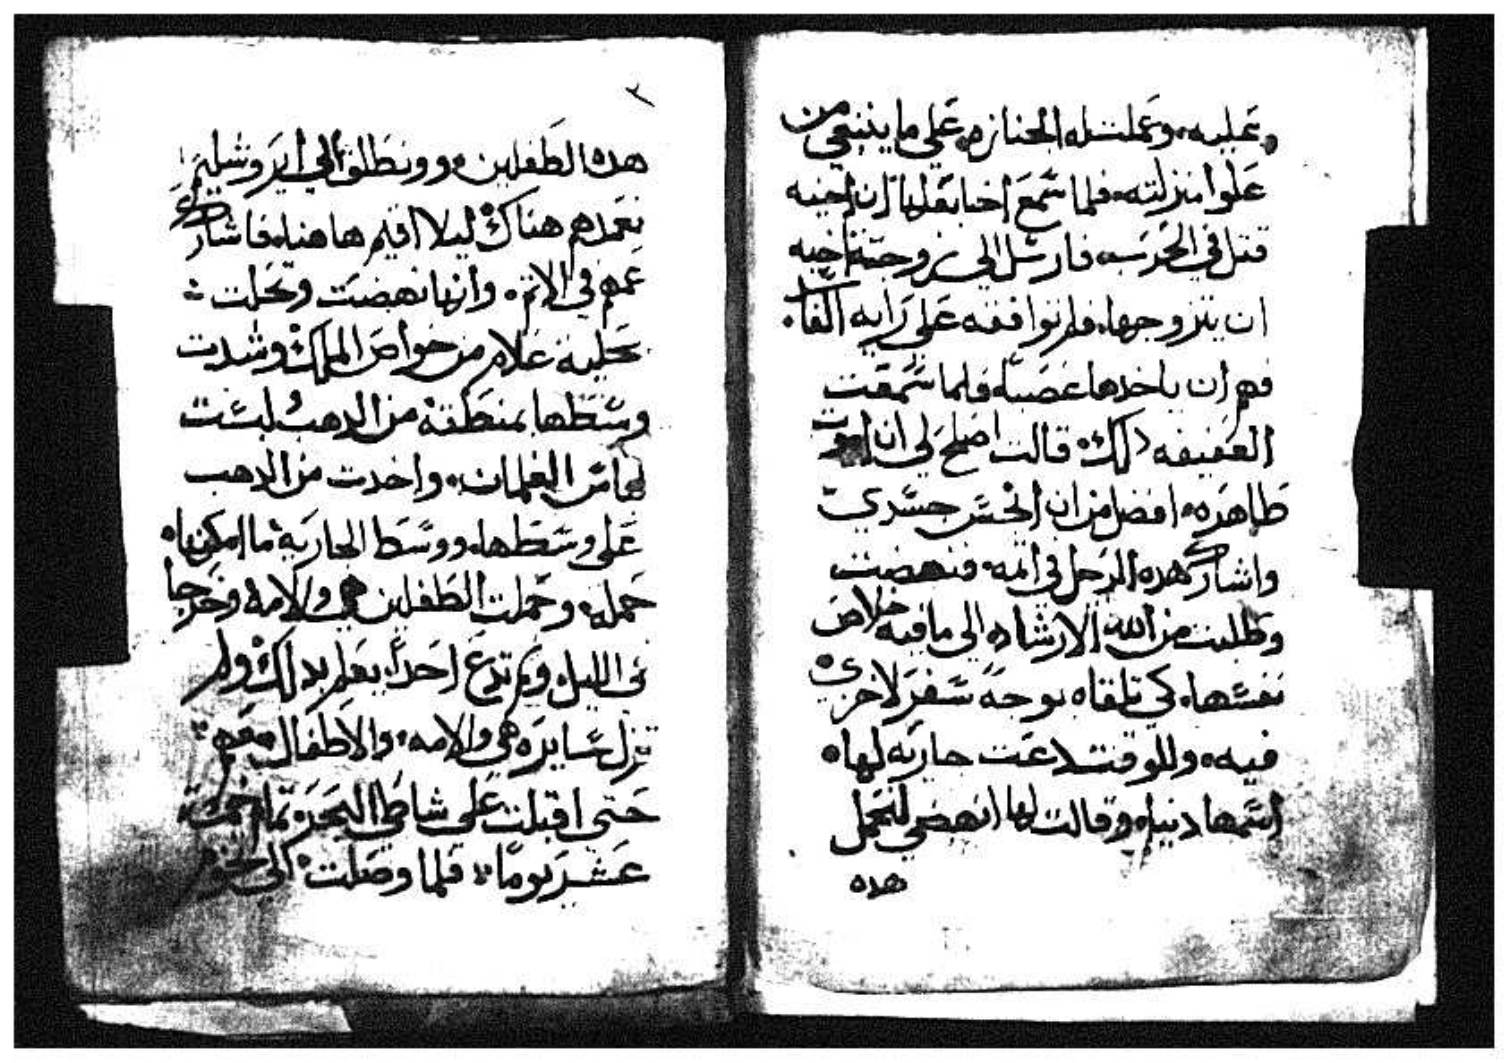 عليه وعملت له الجنازه على ما ينبغي من
علوا منزلته فلما سمع اخا بعلها ان اخيه
قتل في الحرب فارسل الى زوجة اخيه
ان يتزوجها فلم توافقه على رايه
فهم ان ياخدها غصبًا فلما سمعت
العفيفه دلك قالت اصلح لي ان اموت
طاهره افضل من ان انجس جسدي
واشارك هده الرجل في اتمه فنهضت
وطلبت من الله الارشاد الى ما فيه خلاص
نفسها كي تلقاه بوجه سفر لا خزى
فيه وللوقت دعت جاريه لها
اسمها دنياه وقالت لها انهضي لنحمل
هده
٢
هده الطفلين وونطلق الي ايروشليم
نعمدهم هناك ليلا اقيم هاهناه فاشارك
عمهم في الاتم وانها نهضت وتحلت
بحلية غلام من خواص الملك وشدت
وسطها بمنطقه من الدهب لبست
لباس الغلمان واخدت من الدهب
على وسطها ووسط الجاريه ما امكنها
حمله وحملت الطفلين هي والامه وخرجا
في الليل ولم تدع احدًا يعلم بدلك ولم
تزل سايره هي والامه والاطفال معهم
حتى اقبلت على شاطي البحر تمام خمسة
عشر يومًا فلما وصلت الى